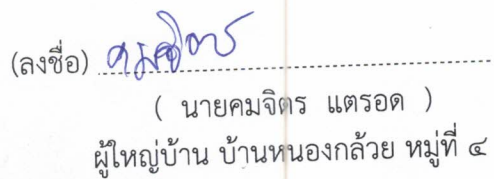 (ลงชื่อ) คมจิตร
( นายคมจิตร แตรอด )
ผู้ใหญ่บ้าน บ้านหนองกล้วย หมู่ที่ ๔